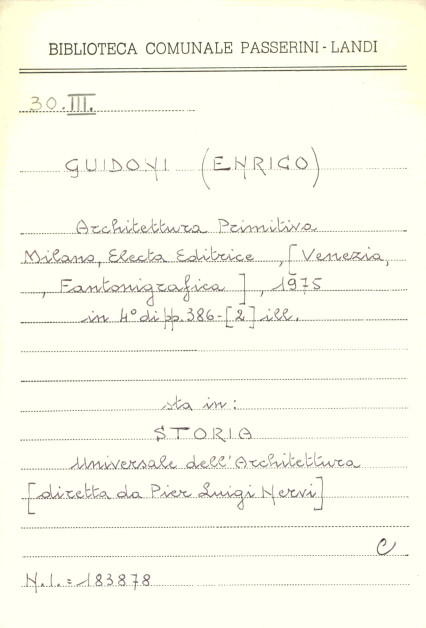 BIBLIOTECA COMUNALE PASSERINI - LANDI
30.III.
GUIDONI (ENRICO)
Architettura Primitiva
Milano, Electa Editrice , [Venezia,
, Fantonigrafica ] , 1975
in 4° di pp. 386-[2] ill.
sta in :
STORIA
Universale dell'Architettura
[diretta da Pier Luigi Nervi]
C
N.I. = 183878